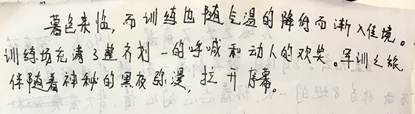 暮色来临，而训练也随气温的降符而渐入佳境。
训练场充满了整齐划一的呼喊和动人的欢笑。军训之旅，
伴随着神秘的黑夜弥漫，拉开序幕。